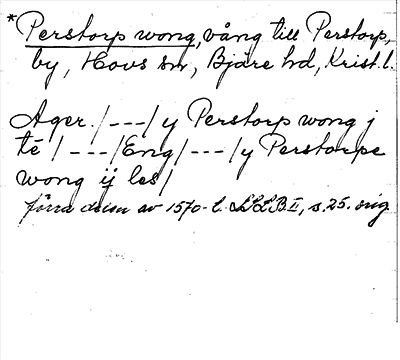 *Perstorp wong, vång till Perstorp,
by, Hovs sn, Bjäre hd, Krist. l.
Ager. /---/ y Perstorp wong j
tē /---/ Eng /---/ y Perstorpe
wong ij les /
förra delen av 1570-t. LLLB. II, s. 25. orig.